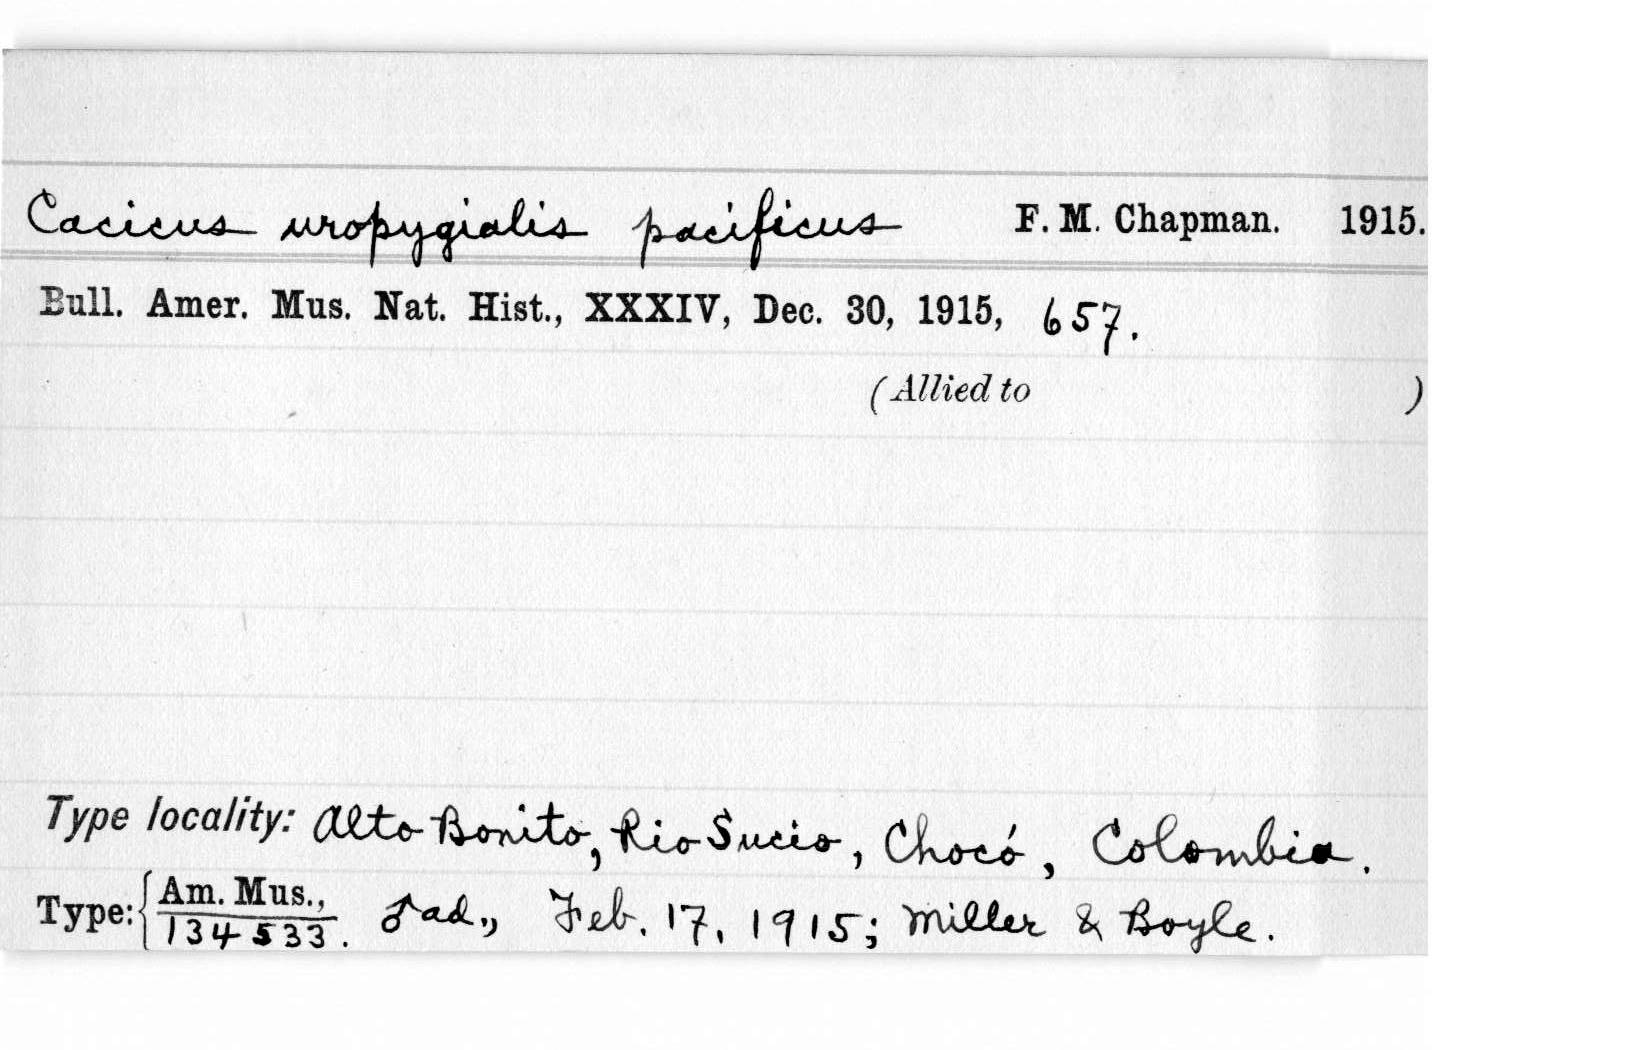 Cacicus uropygialis pacificus F. M. Chapman. 1915.
Bull. Amer. Mus. Nat. Hist., XXXIV, Dec. 30, 1915, 657.
(Allied to )
Type locality: Alto Bonito, Rio Sucio, Chocó, Colombia.
Type: { Am. Mus.,
134533. ♂ ad., Feb. 17, 1915; Miller & Boyle.